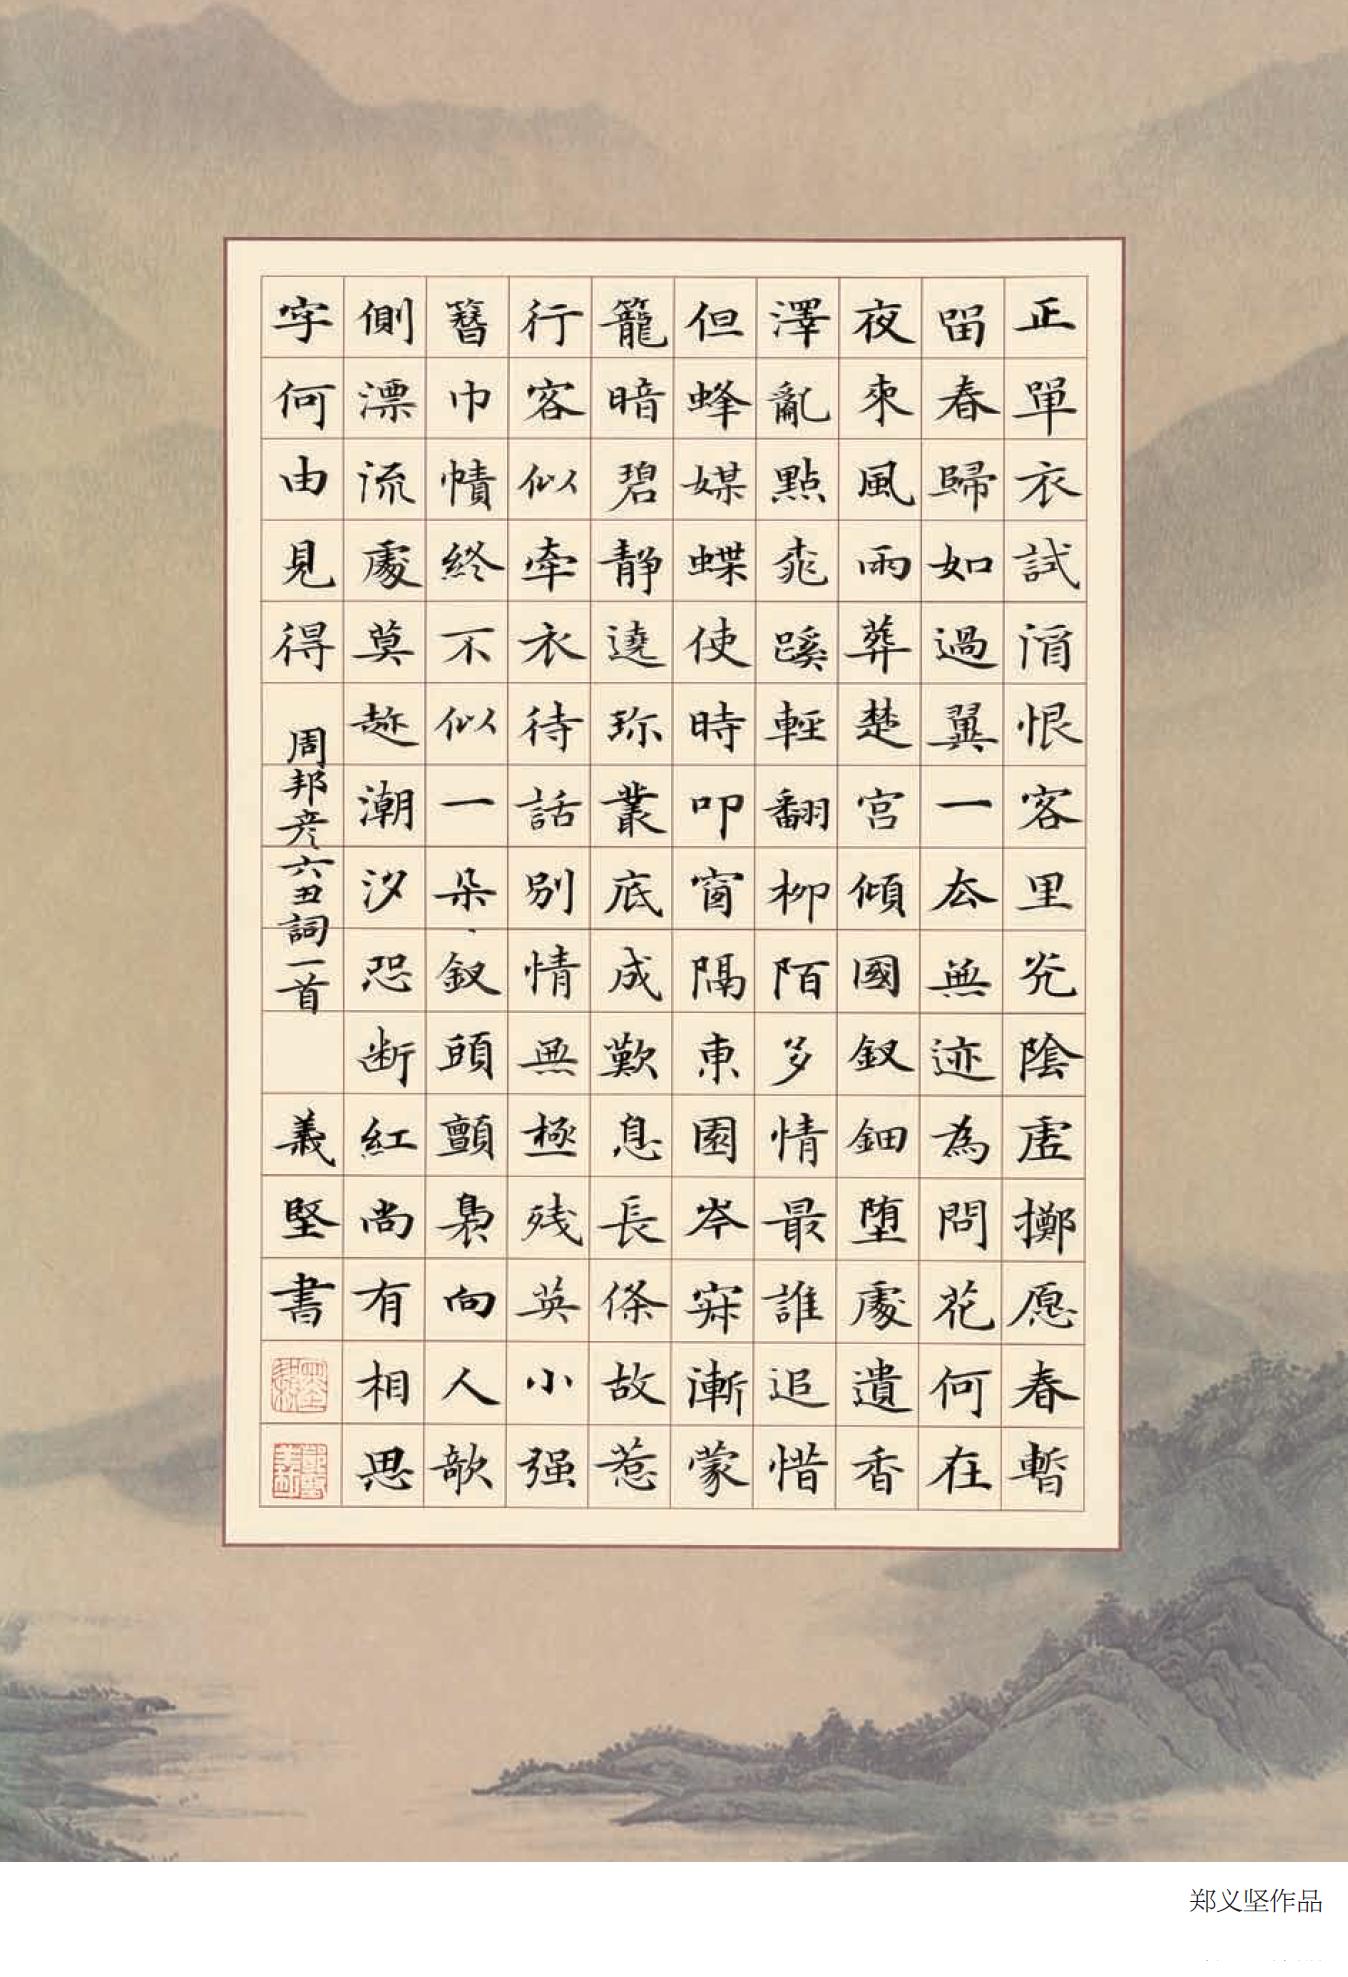 正單衣試酒恨客里光陰虛擲愿春暫
留春歸如過翼一去無迹為問花何在
夜來風雨葬楚宮傾國釵鈿墮處遺香
澤亂點桃蹊輕翻柳陌多情最誰追惜
但蜂媒蝶使時叩窗隔東園岑寂漸蒙
籠暗碧靜遶珎叢底成歎息長條故惹
行客似牽衣待話別情無極殘英小强
簪巾幘終不似一朵釵頭顫裊向人欹
側漂流處莫趂潮汐恐断紅尚有相思
字何由見得
周邦彦六丑詞一首
義堅書
郑义坚作品